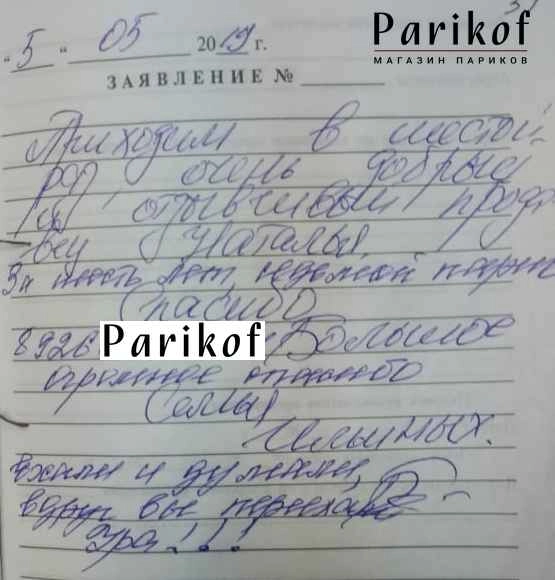 Parikof
МАГАЗИН ПАРИКОВ
"5" 05 2019 г.
ЗАЯВЛЕНИЕ №
Приходим в шестой
раз, очень добрый
и отзывчивый прода-
вец Наталья,
За шесть лет
Спасибо
8926 Parikof Большое
огромное спасибо
Семья
Ильиных.
Ехали и думали,
вдруг вы переехали
Ура!!!